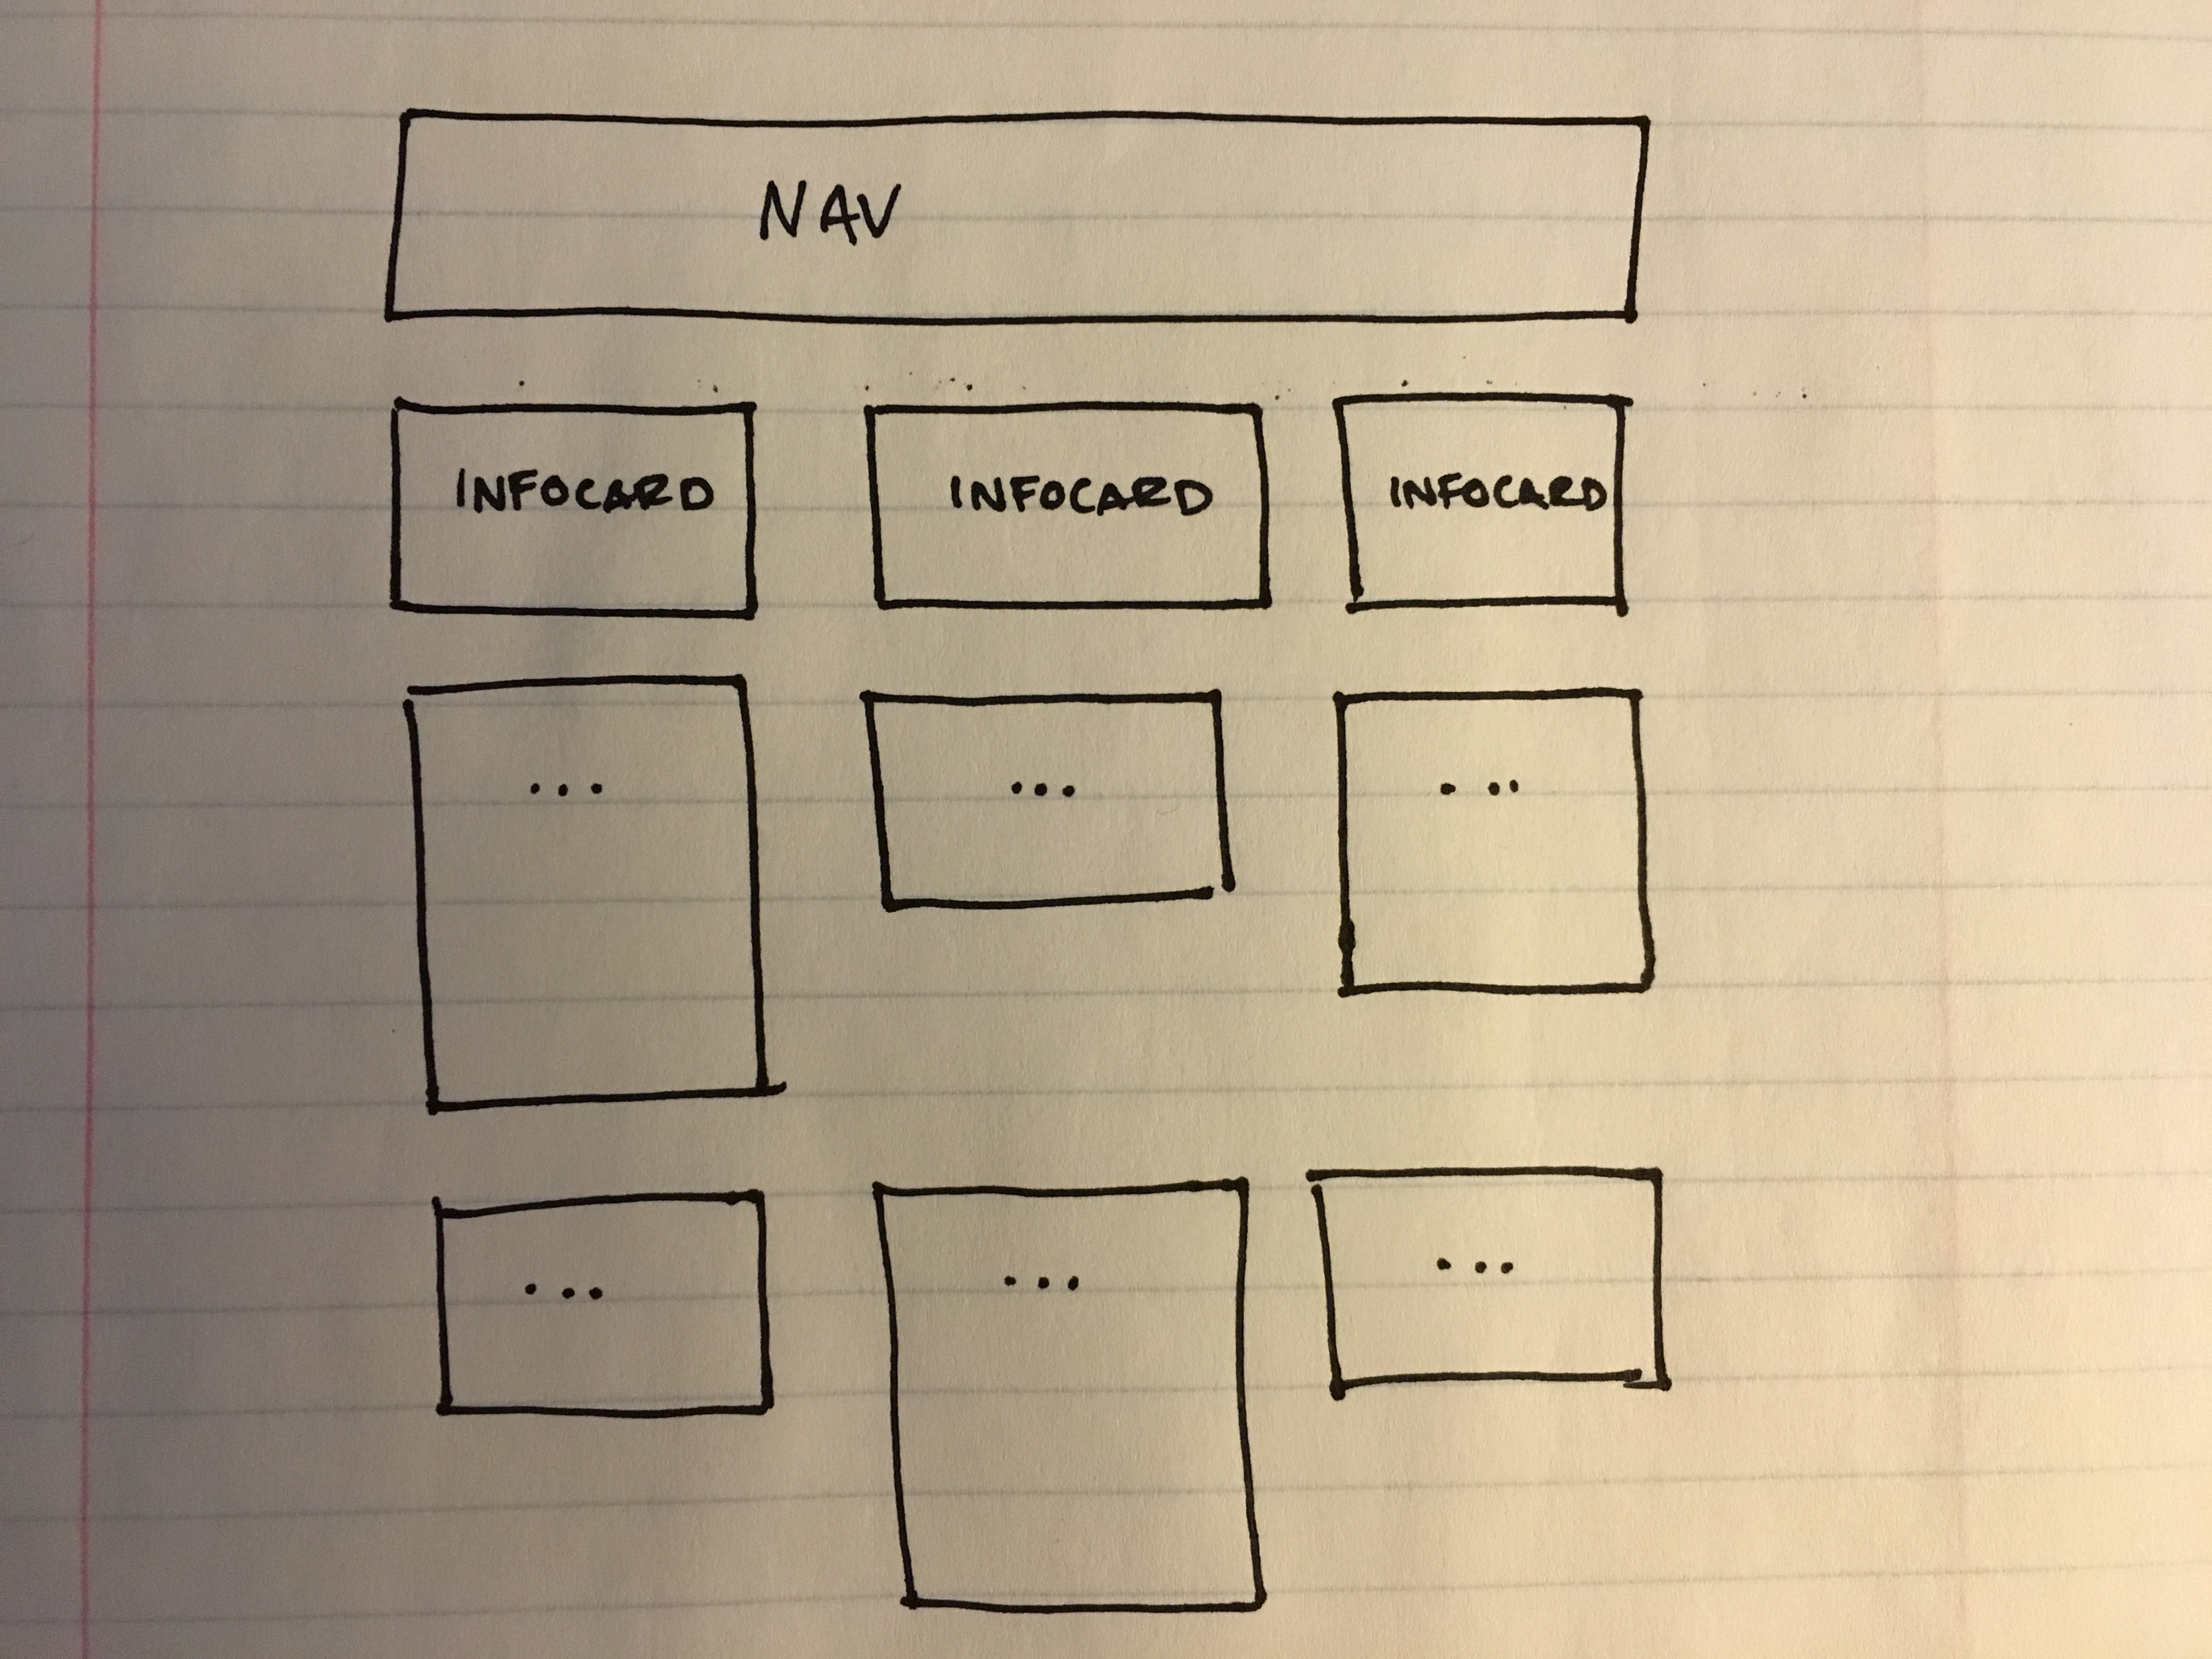 NAV
INFOCARD INFOCARD INFOCARD
... ... ...
... ... ...